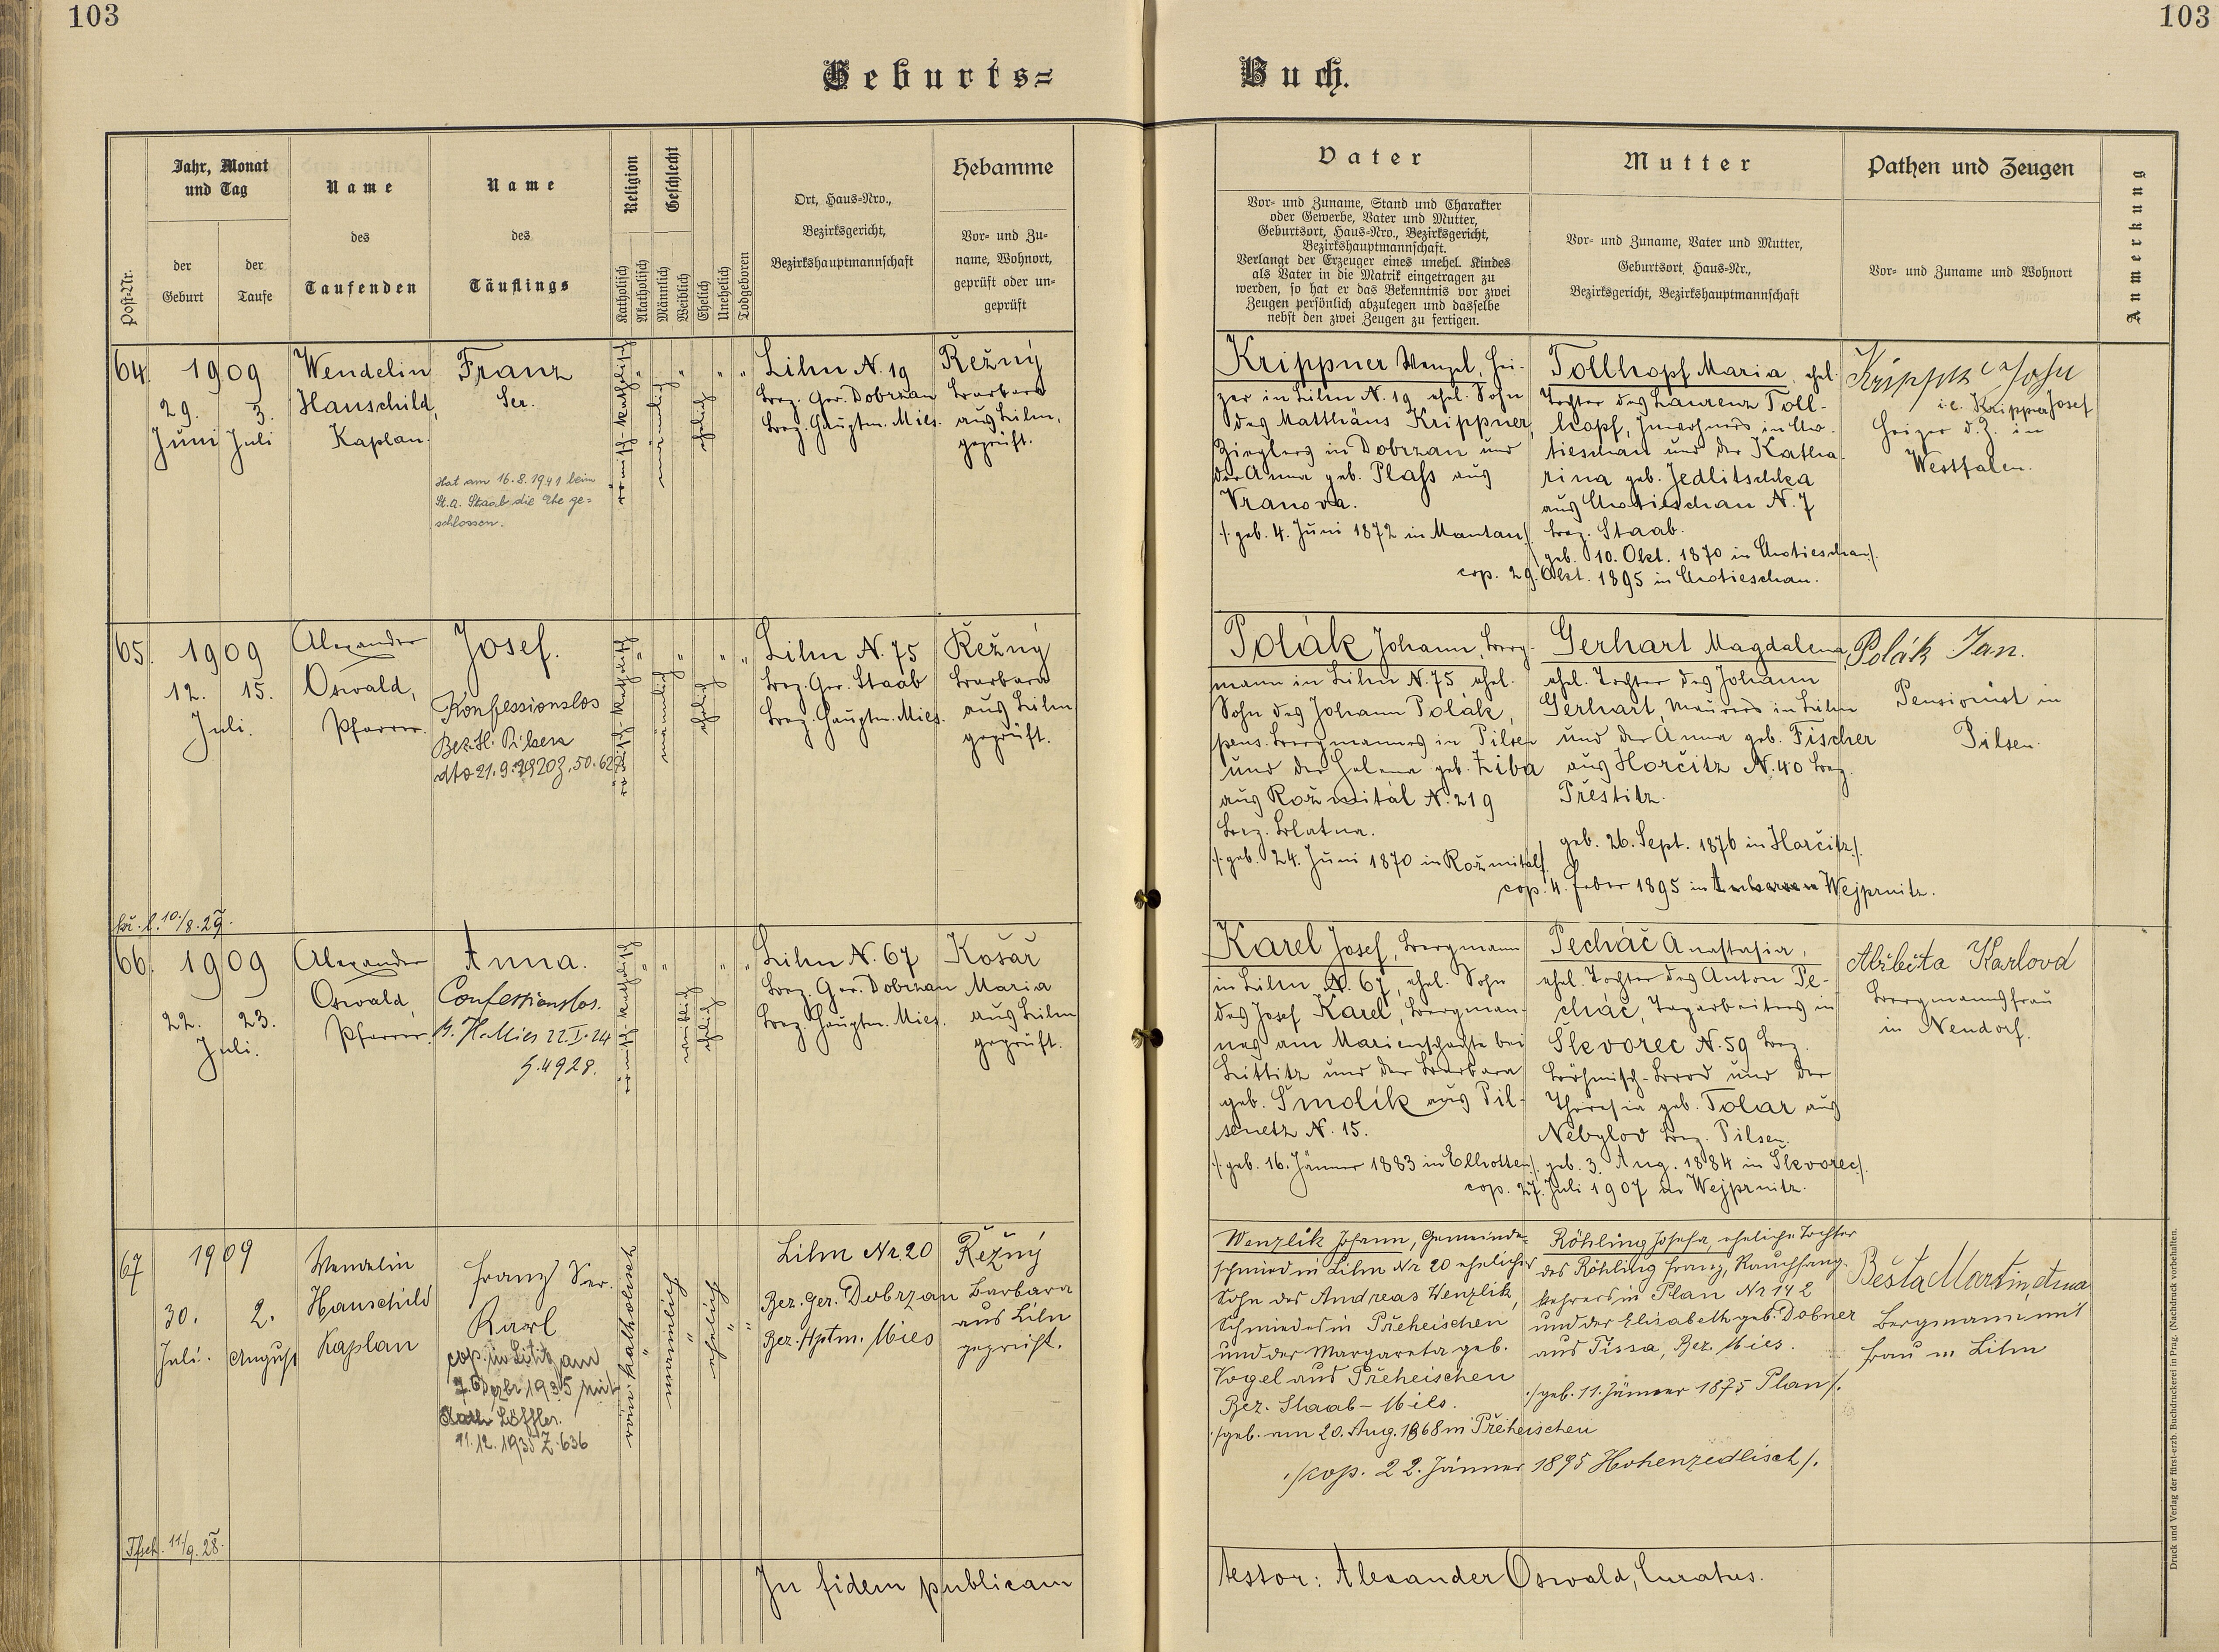 103
103
Geburts=
Buch.
Post-Nr.
Jahr, Monat
und Tag
der
Geburt
der
Taufe
Name
des
Taufenden
Name
des
Täuflings
Religion
Katholisch
Akatholisch
Geschlecht
Männlich
Weiblich
Ehelich
Unehelich
Todgeboren
Ort, Haus-Nro.,
Bezirksgericht,
Bezirkshauptmannschaft
Hebamme
Vor- und Zu-
name, Wohnort,
geprüft oder un-
geprüft
Vater
Vor- und Zuname, Stand und Charakter
oder Gewerbe, Vater und Mutter,
Geburtsort, Haus-Nro., Bezirksgericht,
Bezirkshauptmannschaft.
Verlangt der Erzeuger eines unehel. Kindes
als Vater in die Matrik eingetragen zu
werden, so hat er das Bekenntnis vor zwei
Zeugen persönlich abzulegen und dasselbe
nebst den zwei Zeugen zu fertigen.
Mutter
Vor- und Zuname, Vater und Mutter,
Geburtsort, Haus-Nr.,
Bezirksgericht, Bezirkshauptmannschaft
Pathen und Zeugen
Vor- und Zuname und Wohnort
Anmerkung
64.
1909
29. 3.
Juni Juli
Wendelin
Hauschild,
Kaplan.
Franz
Ser.
Hat am 16.8.1941 beim
St.a. Staab die Ehe ge=
schlossen.
römisch-katholisch
männlich
ehelich
Lihn N. 19
Bez. Ger. Dobrzan
Bez. Hauptm. Mies.
Řežný
Barbara
aus Lihn,
geprüft.
Krippner Wenzl, Hei-
zer in Lihn N. 19 ehel. Sohn
des Matthäus Krippner,
Zieglers in Dobrzan und
der Anna geb. Plass aus
Vranova.
/: geb. 4. Juni 1872 in Mantau :/
Tollhopf Maria, ehel.
Tochter des Laurenz Toll-
hopf, Inwohners in Cho-
tieschau und der Katha-
rina geb. Jedlitschka
aus Chotieschau N. 7
Bez. Staab.
geb. 10. Okt. 1870 in Chotieschau :/
cop. 29. Okt. 1895 in Chotieschau.
i.e. Krippner Josef
Heizer d. Z. in
Westfalen.
65.
1909
12. 15.
Juli.
Alexander
Oswald,
Pfarrer.
Josef.
Konfessionslos
Bez. H. Pilsen
dto 21.9.1920 Z. 50.627
römisch-katholisch
männlich
ehelich
Lihn N. 75
Bez. Ger. Staab
Bez. Hauptm. Mies.
Řežný
Barbara
aus Lihn
geprüft.
Polák Johann, Berg-
mann in Lihn N. 75 ehel.
Sohn des Johann Polák,
pens. Bergmannes in Pilsen
und der Helena geb. Žiba
aus Rožmitál N. 219
Bez. Blatna.
/: geb. 24. Juni 1870 in Rožmitál :/
Gerhart Magdalena,
ehel. Tochter des Johann
Gerhart, Maurers in Lihn
und der Anna geb. Fischer
aus Horčitz N. 40 Bez.
Přestitz.
geb. 26. Sept. 1876 in Horčitz :/
cop. 4. Feber 1895 in Wejprnitz.
Polák Jan.
Pensionist in
Pilsen.
10./8.29.
66.
1909
22. 23.
Juli.
Alexander
Oswald,
Pfarrer.
Anna.
Confessionslos.
B. H. Mies 22.I.24
4928.
römisch-katholisch
weiblich
ehelich
Lihn N. 67
Bez. Ger. Dobrzan
Bez. Hauptm. Mies.
Košař
Maria
aus Lihn
geprüft.
Karel Josef, Bergmann
in Lihn N. 67, ehel. Sohn
des Josef Karel, Bergman-
nes am Marienschachte bei
Littitz und der Barbara
geb. Smolík aus Pil-
senetz N. 15.
/: geb. 16. Jänner 1883 in Ellhotten :/
Pecháč Anastasia,
ehel. Tochter des Anton Pe-
cháč, Tagarbeiters in
Škvorec N. 59 Bez.
Böhmisch-Brod und der
Theresia geb. Tolar aus
Nebylov Bez. Pilsen.
geb. 3. Aug. 1884 in Škvorec :/
cop. 27. Juli 1907 in Wejprnitz.
Alžběta Karlova
Bergmannsfrau
in Neudorf.
67
1909
30. 2.
Juli. August
Wendelin
Hauschild
Kaplan
Franz Ser.
Karl
cop. in Lititz am
7. Dezbr 1935 mit
Löffler.
11.12.1935 Z. 636
röm. katholisch
männlich
ehelich
Lihn Nr. 20
Bez. Ger. Dobrzan
Bez. Hptm. Mies
Řežný
Barbara
aus Lihn
geprüft.
Wenzlik Johann, Gemeinde=
schmied in Lihn Nr 20 ehelicher
Sohn des Andreas Wenzlik,
Schmiedes in Přeheischen
und der Margareta geb.
Vogel aus Přeheischen
Bez. Staab - Mies.
/: geb. am 20. Aug. 1868 in Přeheischen
Röhling Josefa, eheliche Tochter
des Röhling Franz, Rauchfang-
kehrers in Plan Nr 142
und der Elisabeth geb. Dobner
aus Tissa, Bez. Mies.
/: geb. 11. Jänner 1875 Plan :/
/: cop. 22. Jänner 1895 Hohenzedlisch :/
Bešta Martin
Bergmann mit
Frau in Lihn
11/9.28.
In fidem publicam
testor: Alexander Oswald, Curatus.
Druck und Verlag der fürst-erzb. Buchdruckerei in Prag. (Nachdruck vorbehalten.